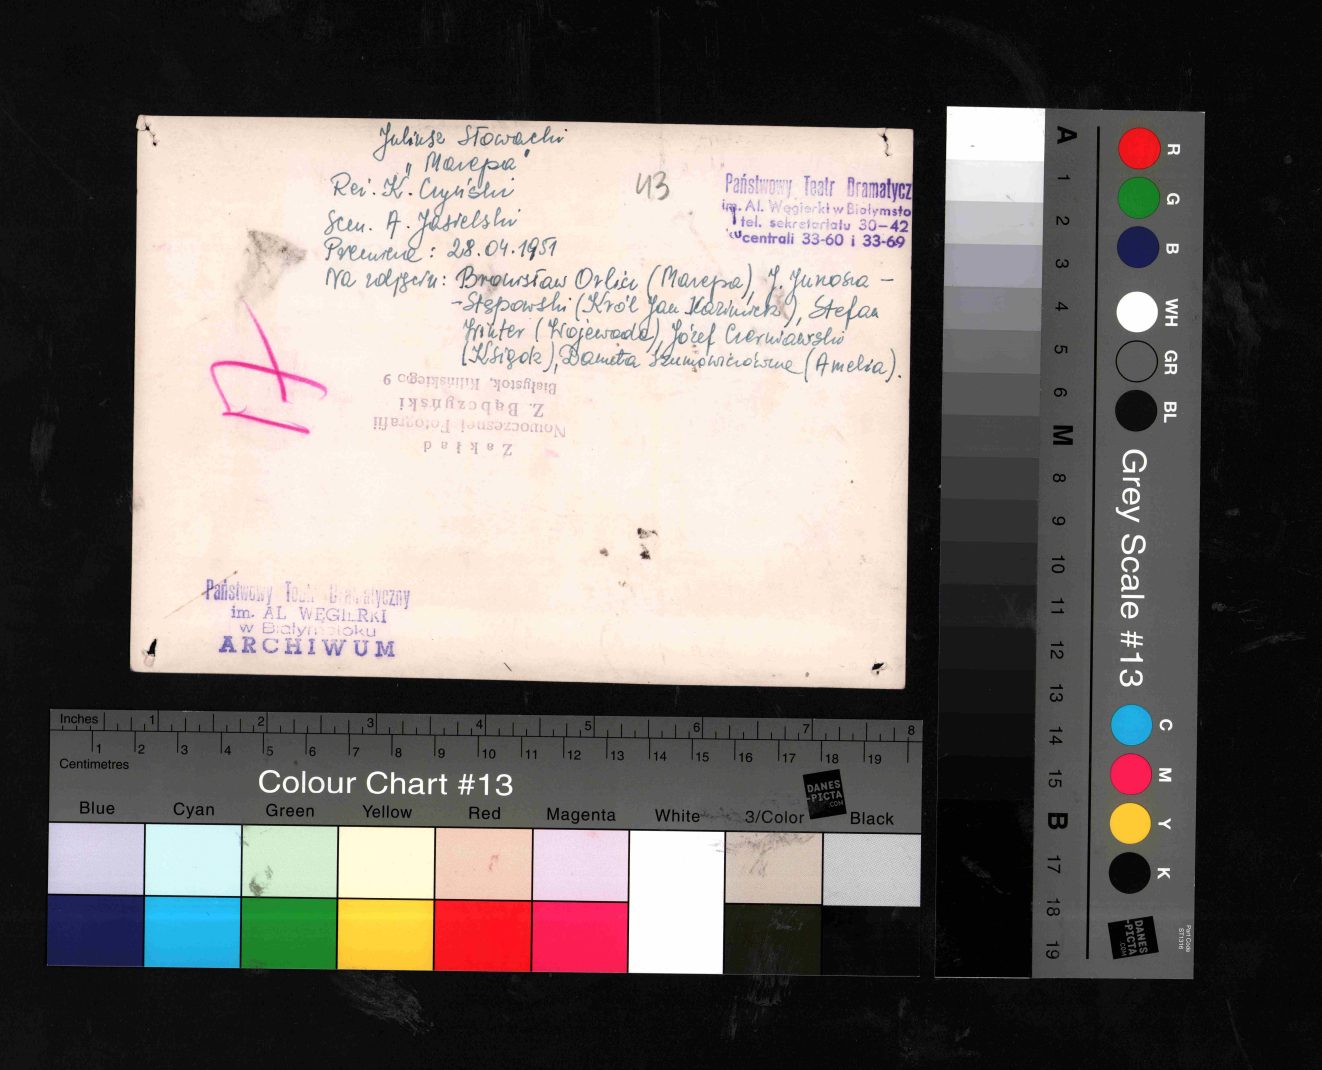 Juliusz Słowacki
„Mazepa"
Reż. K. Czyński
Scen. A. Jasielski
Premiera: 28.04.1951
Na zdjęciu: Bronisław Orlicz (Mazepa), J. Junosza –
– Stępowski (Król Jan Kazimierz), Stefan
Winter (Wojewoda), Józef Czerniawski
(Ksiądz), Danuta Szumowiczówna (Amelia).
43
Państwowy Teatr Dramatycz
im. Al. Węgierki w Białymsto
tel. sekretariatu 30–42
centrali 33-60 i 33-69
17
Zakład
Nowoczesnej Fotografii
Z. Bąbczyński
Białystok, Kilińskiego 9
Państwowy Teatr Dramatyczny
im. AL. WĘGIERKI
w Białymstoku
ARCHIWUM
Inches 1 2 3 4 5 6 7 8
1 2 3 4 5 6 7 8 9 10 11 12 13 14 15 16 17 18 19
Centimetres
Colour Chart #13
DANES
-PICTA
.COM
Blue Cyan Green Yellow Red Magenta White 3/Color Black
A 1 2 3 4 5 6 M 8 9 10 11 12 13 14 15 B 17 18 19
R G B WH GR BL
Grey Scale #13
C M Y K
DANES
-PICTA
.COM
Part Code
ST1316